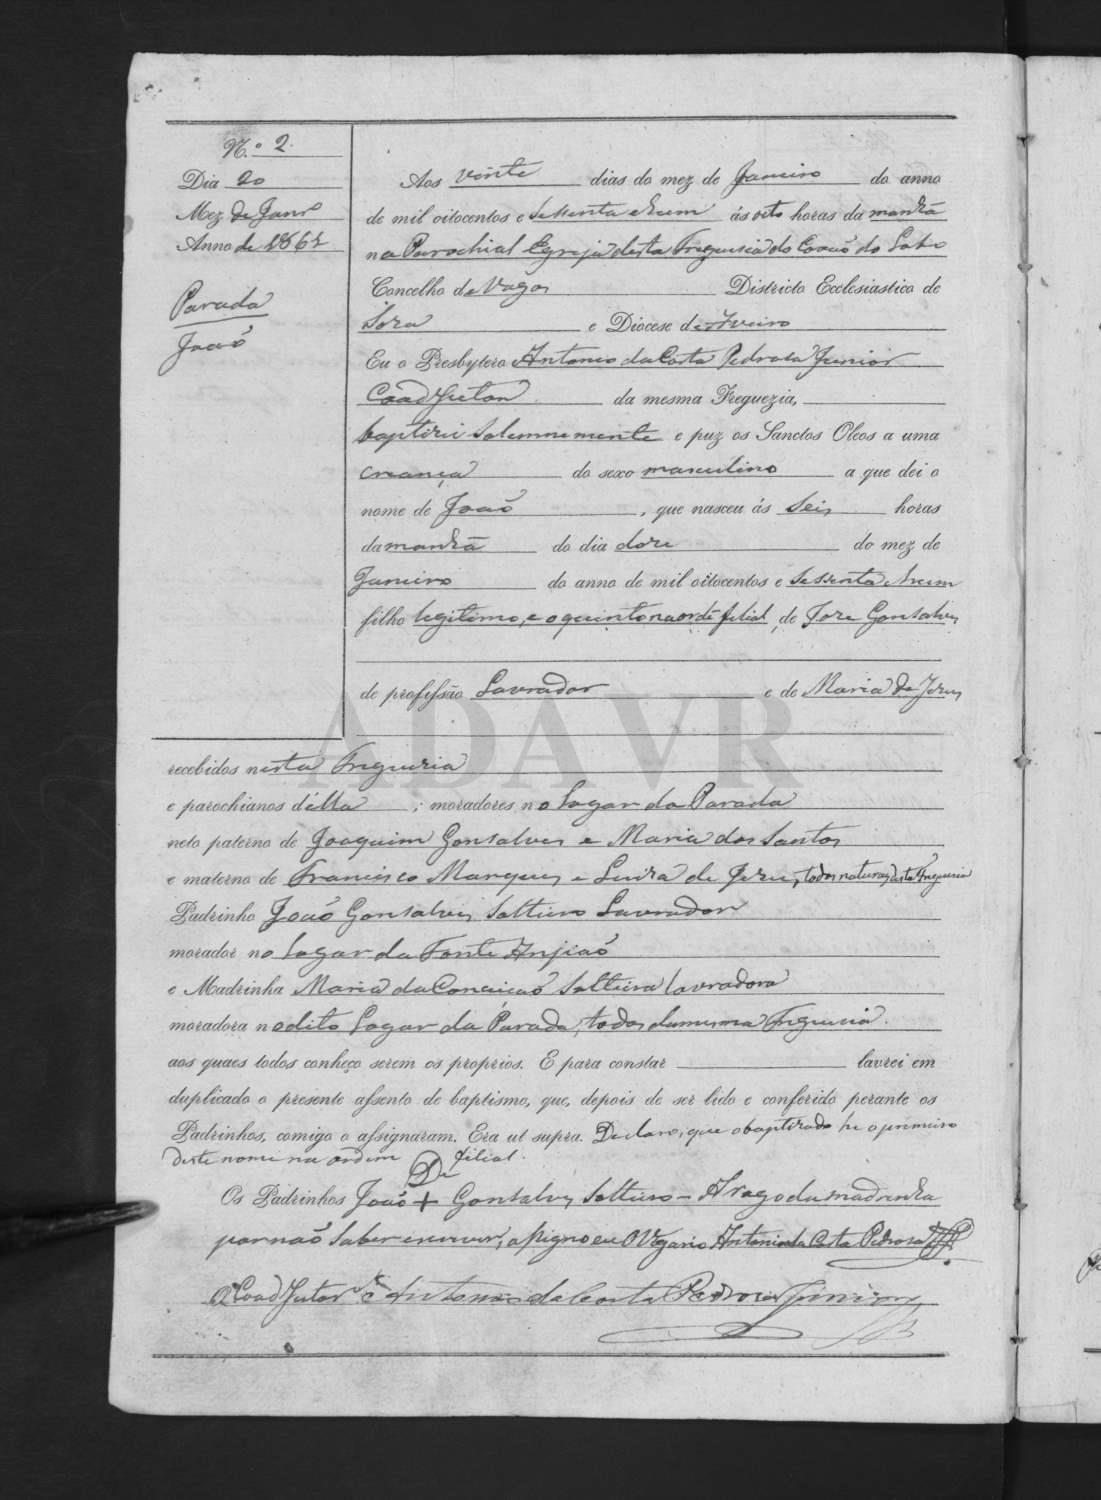 N.º 2.
Dia 20
Mez de Janr.º
Anno de 1861
Parada
João
Aos vinte dias do mez de Janeiro do anno
de mil oitocentos e sessenta e hum ás oito horas da manhã
na Parochial Egreja desta Freguesia do Covaõ do Lobo
Concelho de Vagos Districto Ecclesiastico de
Soza e Diocese de Aveiro
Eu o Presbytero Antonio da Costa Pedrosa Junior
Coadjutor da mesma Freguezia,
baptizei solemnemente e puz os Sanctos Oleos a uma
creança do sexo masculino a que dei o
nome de Joaõ, que nasceu ás seis horas
da manhã do dia doze do mez de
Janeiro do anno de mil oitocentos e sessenta e hum
filho legitimo, e o quinto na ordẽ filial, de Jose Gonsalves
de profissão Lavrador e de Maria de Jezus
recebidos nesta Freguezia
e parochianos d'ella; moradores no Logar da Parada
neto paterno de Joaquim Gonsalves e Maria dos Santos
e materno de Francisco Marques e Luiza de Jezus, todos naturaes desta Freguezia
Padrinho Joaõ Gonsalves Solteiro Lavrador
morador no Logar da Fonte Anjiaõ
e Madrinha Maria da Conceicaõ Solteira lavradora
moradora no dito Logar da Parada, todos da mesma Freguezia.
aos quaes todos conheço serem os proprios. E para constar lavrei em
duplicado o presente assento de baptismo, que, depois de ser lido e conferido perante os
Padrinhos, comigo o assignaram. Era ut supra. Declaro, que o baptizado he o primeiro
deste nome na ordem filial.
De
Os Padrinhos Joaõ + Gonsalves Solteiro - A rogo da madrinha
por naõ saber escrever, assigno eu O Vigario Antonio da Costa Pedrosa
O Coadjutor Antonio da Costa Pedrosa Junior
ADAVR